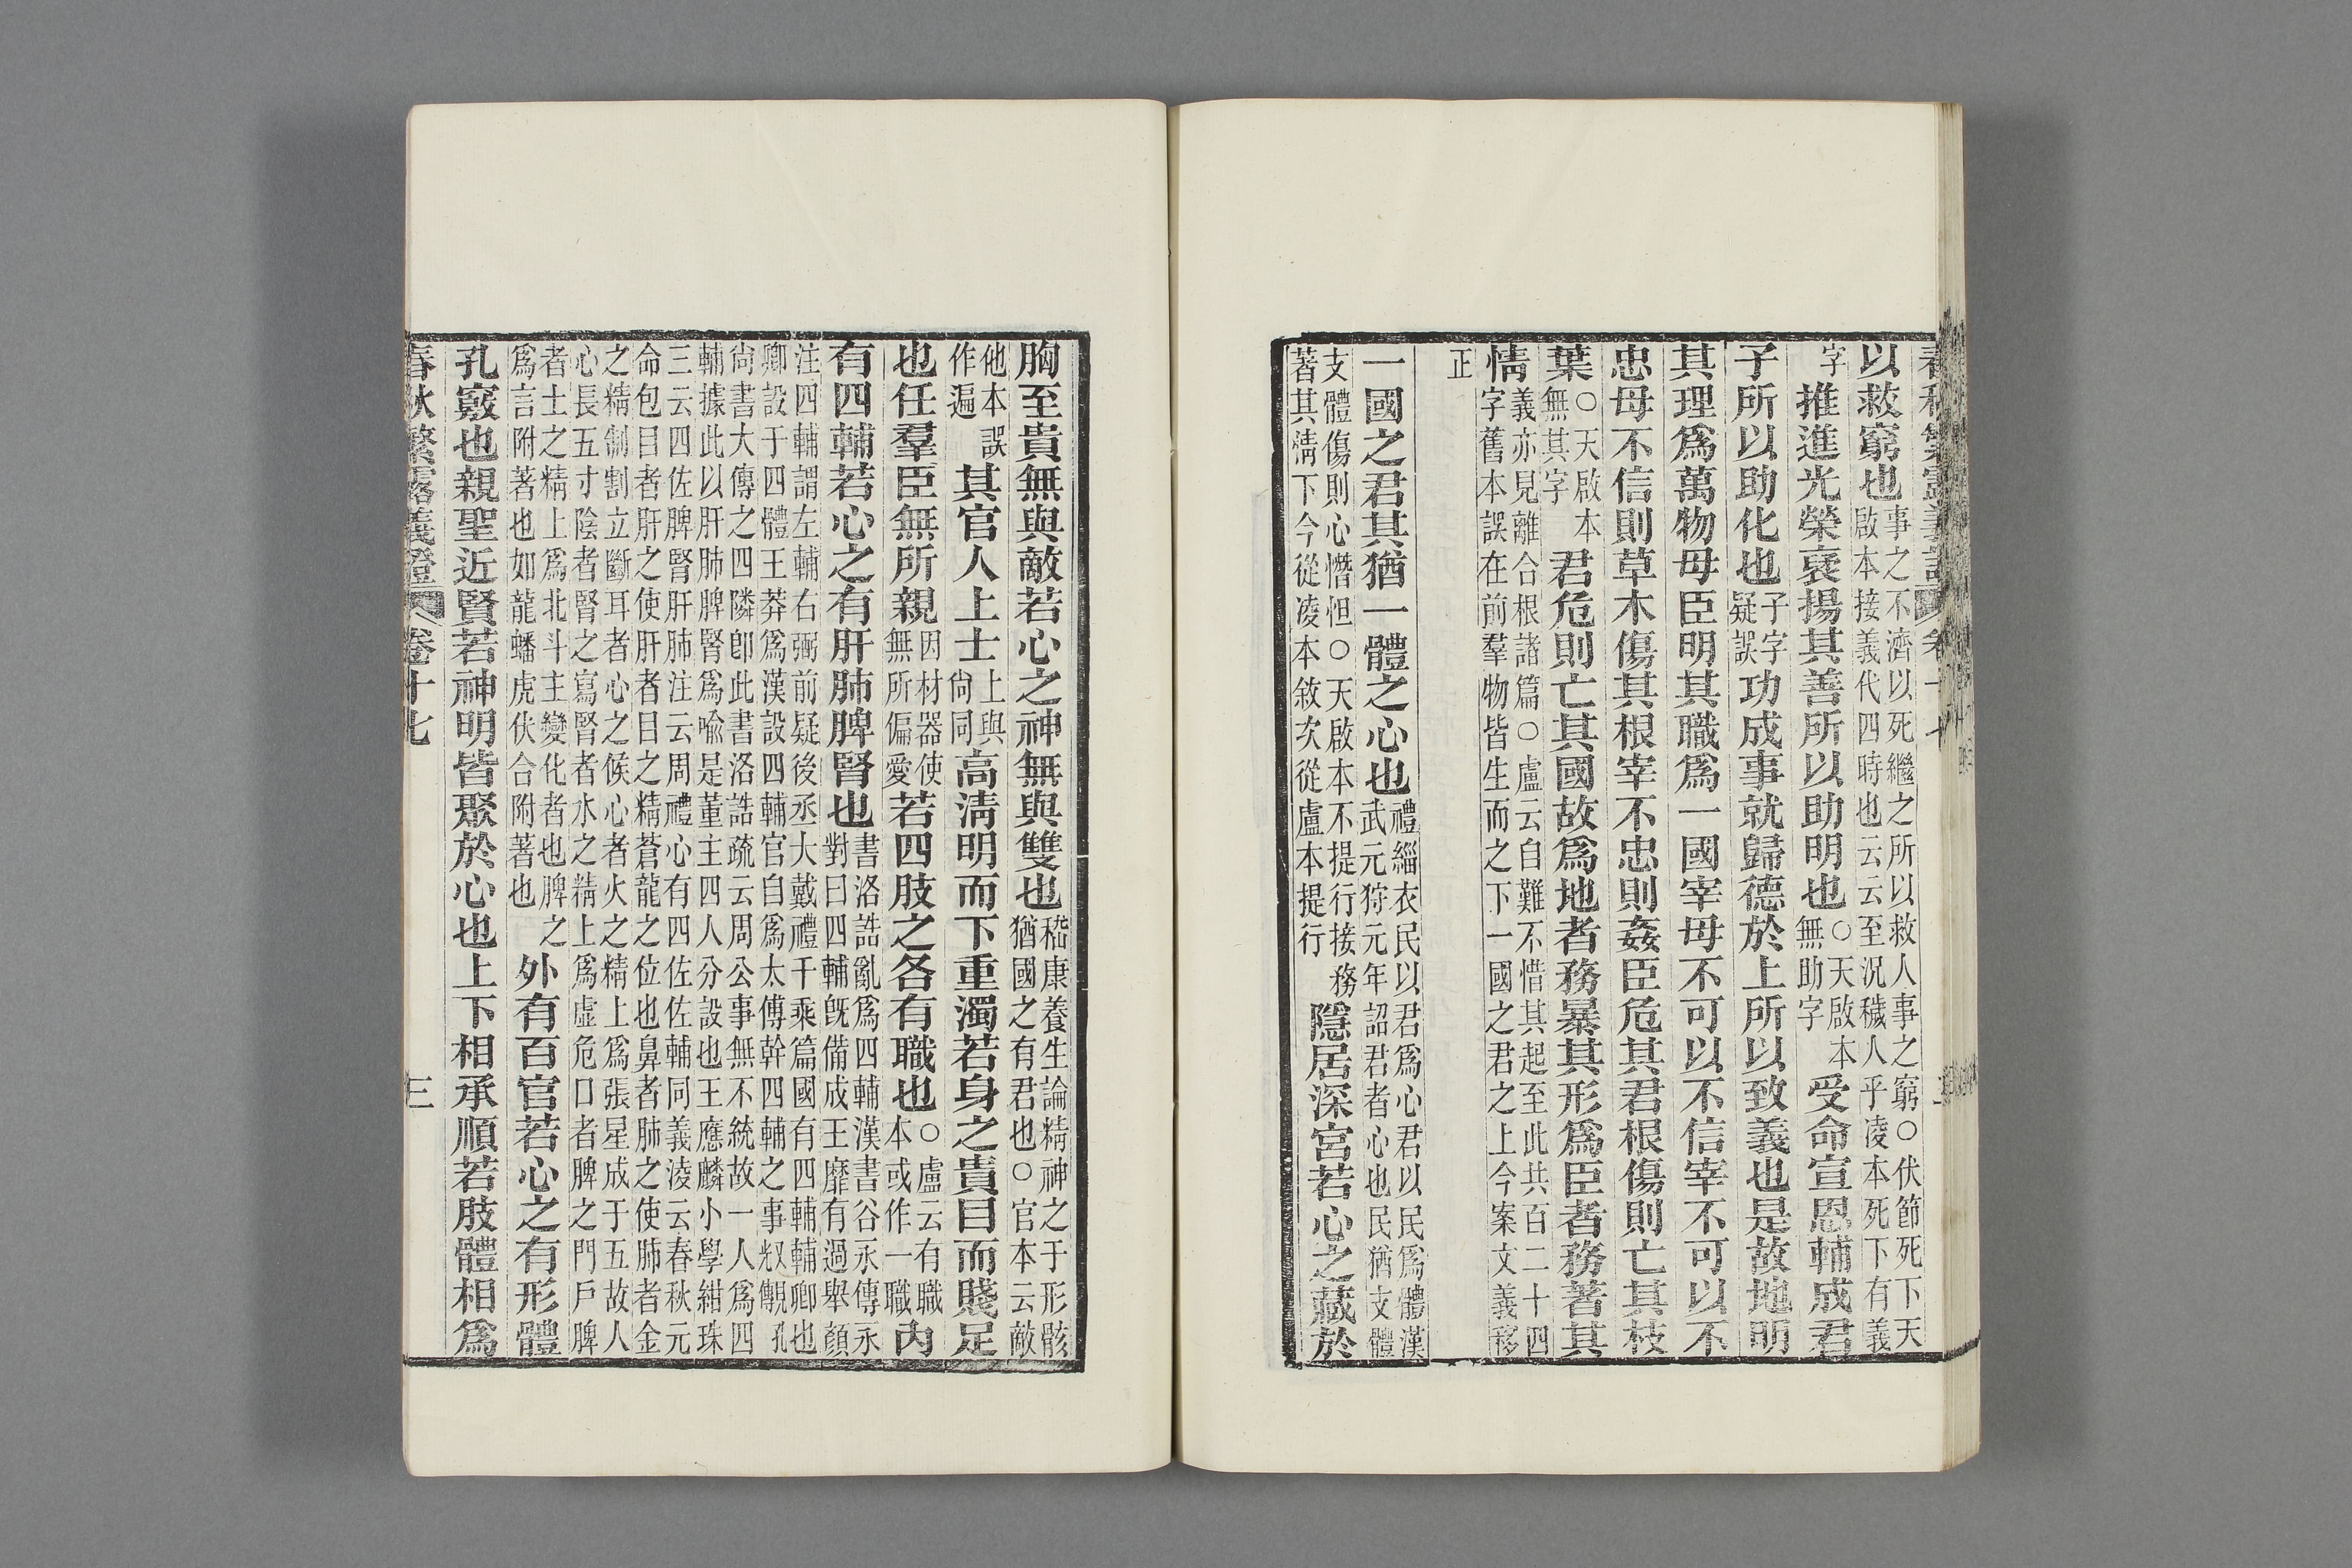 春秋繁露義證 卷十七
以救窮也事之不濟以死繼之所以救人事之窮○伏節死下天
啟本接義代四時也云云至況穢人乎凌本死下有義
字推進光榮褒揚其善所以助明也○天啟本
無助字受命宣恩輔成君
子所以助化也子字
疑誤功成事就歸德於上所以致義也是故地明
其理爲萬物母臣明其職爲一國宰母不可以不信宰不可以不
忠母不信則草木傷其根宰不忠則姦臣危其君根傷則亡其枝
葉○天啟本
無其字君危則亡其國故爲地者務暴其形爲臣者務著其
情義亦見離合根諸篇○盧云自難不惜其起至此共百二十四
字舊本誤在前羣物皆生而之下一國之君之上今案文義移
正
一國之君其猶一體之心也禮緇衣民以君爲心君以民爲體漢
武元狩元年詔君者心也民猶支體
支體傷則心憯怛○天啟本不提行接務
著其情下今從凌本敘次從盧本提行隱居深宮若心之藏於
胸至貴無與敵若心之神無與雙也嵇康養生論精神之于形骸
猶國之有君也○官本云敵
他本誤
作遍其官人上士上與
尙同高清明而下重濁若身之貴目而賤足
也任羣臣無所親因材器使
無所偏愛若四肢之各有職也○盧云有職
本或作一職內
有四輔若心之有肝肺脾腎也書洛誥亂爲四輔漢書谷永傳永
對曰四輔旣備成王靡有過舉顏
注四輔謂左輔右弼前疑後丞大戴禮千乘篇國有四輔輔卿也
卿設于四體王莽爲漢設四輔官自爲太傅幹四輔之事叔覩孔
尙書大傳之四隣卽此書洛誥疏云周公事無不統故一人爲四
輔據此以肝肺脾腎爲喻是董主四人分設也王應麟小學紺珠
三云四佐脾腎肝肺注云周禮心有四佐佐輔同義凌云春秋元
命包目者肝之使肝者目之精蒼龍之位也鼻者肺之使肺者金
之精制割立斷耳者心之候心者火之精上爲張星成于五故人
心長五寸陰者腎之寫腎者水之精上爲虛危口者脾之門戶脾
者土之精上爲北斗主變化者也脾之
爲言附著也如龍蟠虎伏合附著也外有百官若心之有形體
孔竅也親聖近賢若神明皆聚於心也上下相承順若肢體相爲
春秋繁露義證 卷十七 三